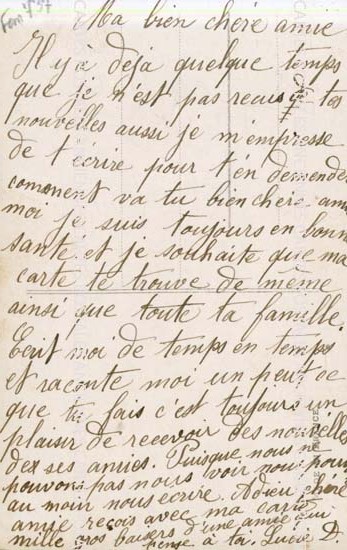 Ma bien chère amie
Il y a deja quelque temps
que je n'est pas recus tes
nouvelles aussi je m'empresse
de t'ecrire pour t'en demander
comment va tu bien chere amie
moi je suis toujours en bonne
santé et je souhaite que ma
carte te trouve de même
ainsi que toute ta famille.
Ecrit moi de temps en temps
et raconte moi un peut ce
que tu fais c'est toujours un
plaisir de recevoir des nouvelles
des ses amies. Puisque nous ne
pouvons pas nous voir nous pouvons
au moin nous ecrire. Adieu chère
amie reçois avec ma carte
mille gros baisers d'une amie qui
pense à toi. Lucie D.